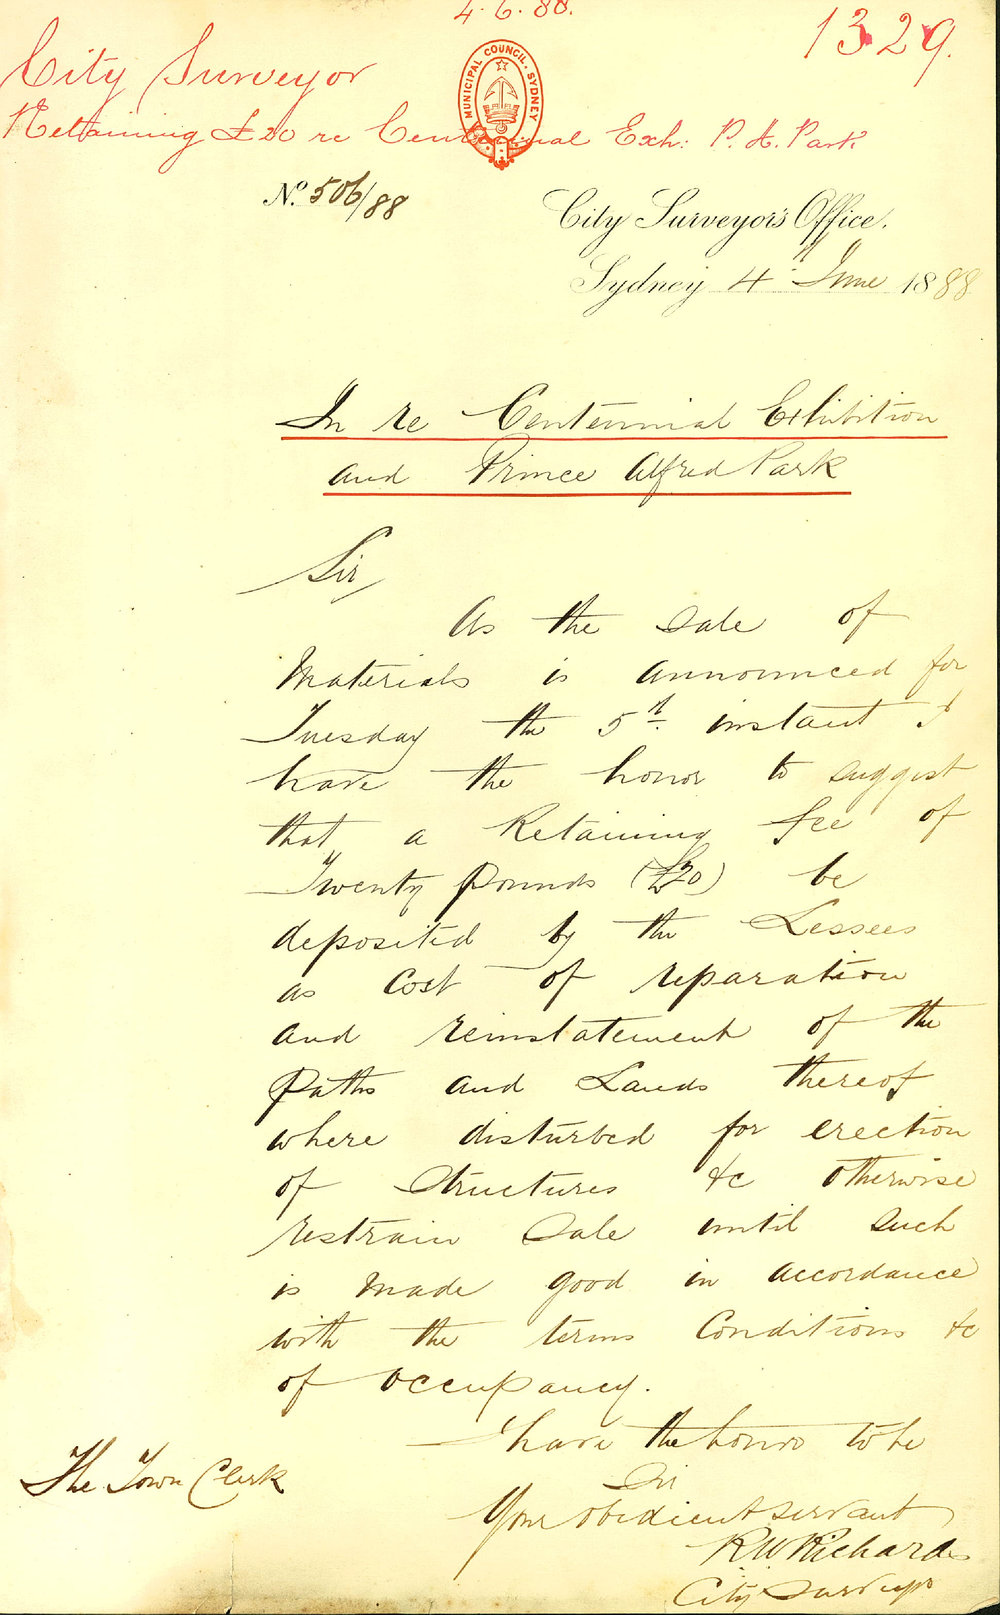 4.6.88.
1329.
City Surveyor
MUNICIPAL COUNCIL. SYDNEY
Retaining £20 re Centennial Exh: P. A. Park
No. 506/88
City Surveyor's Office.
Sydney 4th June 1888
In re Centennial Exhibition
and Prince Alfred Park
Sir,
As the Sale of
Materials is announced for
Tuesday the 5th instant I
have the honor to suggest
that a Retaining fee of
Twenty pounds (£20) be
deposited by the Lessees
as Cost of reparation
and reinstatement of the
Paths and Lands thereof
where disturbed for erection
of Structures &c otherwise
restrain Sale until such
is made good in accordance
with the terms Conditions &c
of occupancy.
I have the honor to be
Sir
Your obedient servant
The Town Clerk
R W Richards
City Surveyor